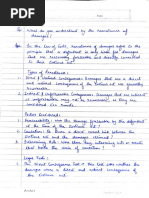 Date
Q. What do you understand by the Remoteness of
damages?
Ans. In the Law of Torts, Remoteness of damages refers to the
principle that a defendant is only liable for damages
that are reasonably foreseeable and directly connected to
their tortious act.
Types of Remoteness:
1. Direct Consequences: Consequences that are a direct
and natural consequence of the tortious act are generally
recoverable.
2. Indirect / Unforeseeable Consequences: Consequences that are indirect
or unforeseeable may not be recoverable, even if
they were caused by the tortious act.
Factors Considered:
1. Foreseeability: Was the damage foreseeable to the defendant
at the time of the tortious act?
2. Causation: Is there a direct causal link between
the tortious act and the damage?
3. Proximity: How closely related is the damage to
the tortious act?
Legal Tests:
1. The Direct Consequence Test: This test asks whether the
damages were a direct and natural consequence of
the tortious act.